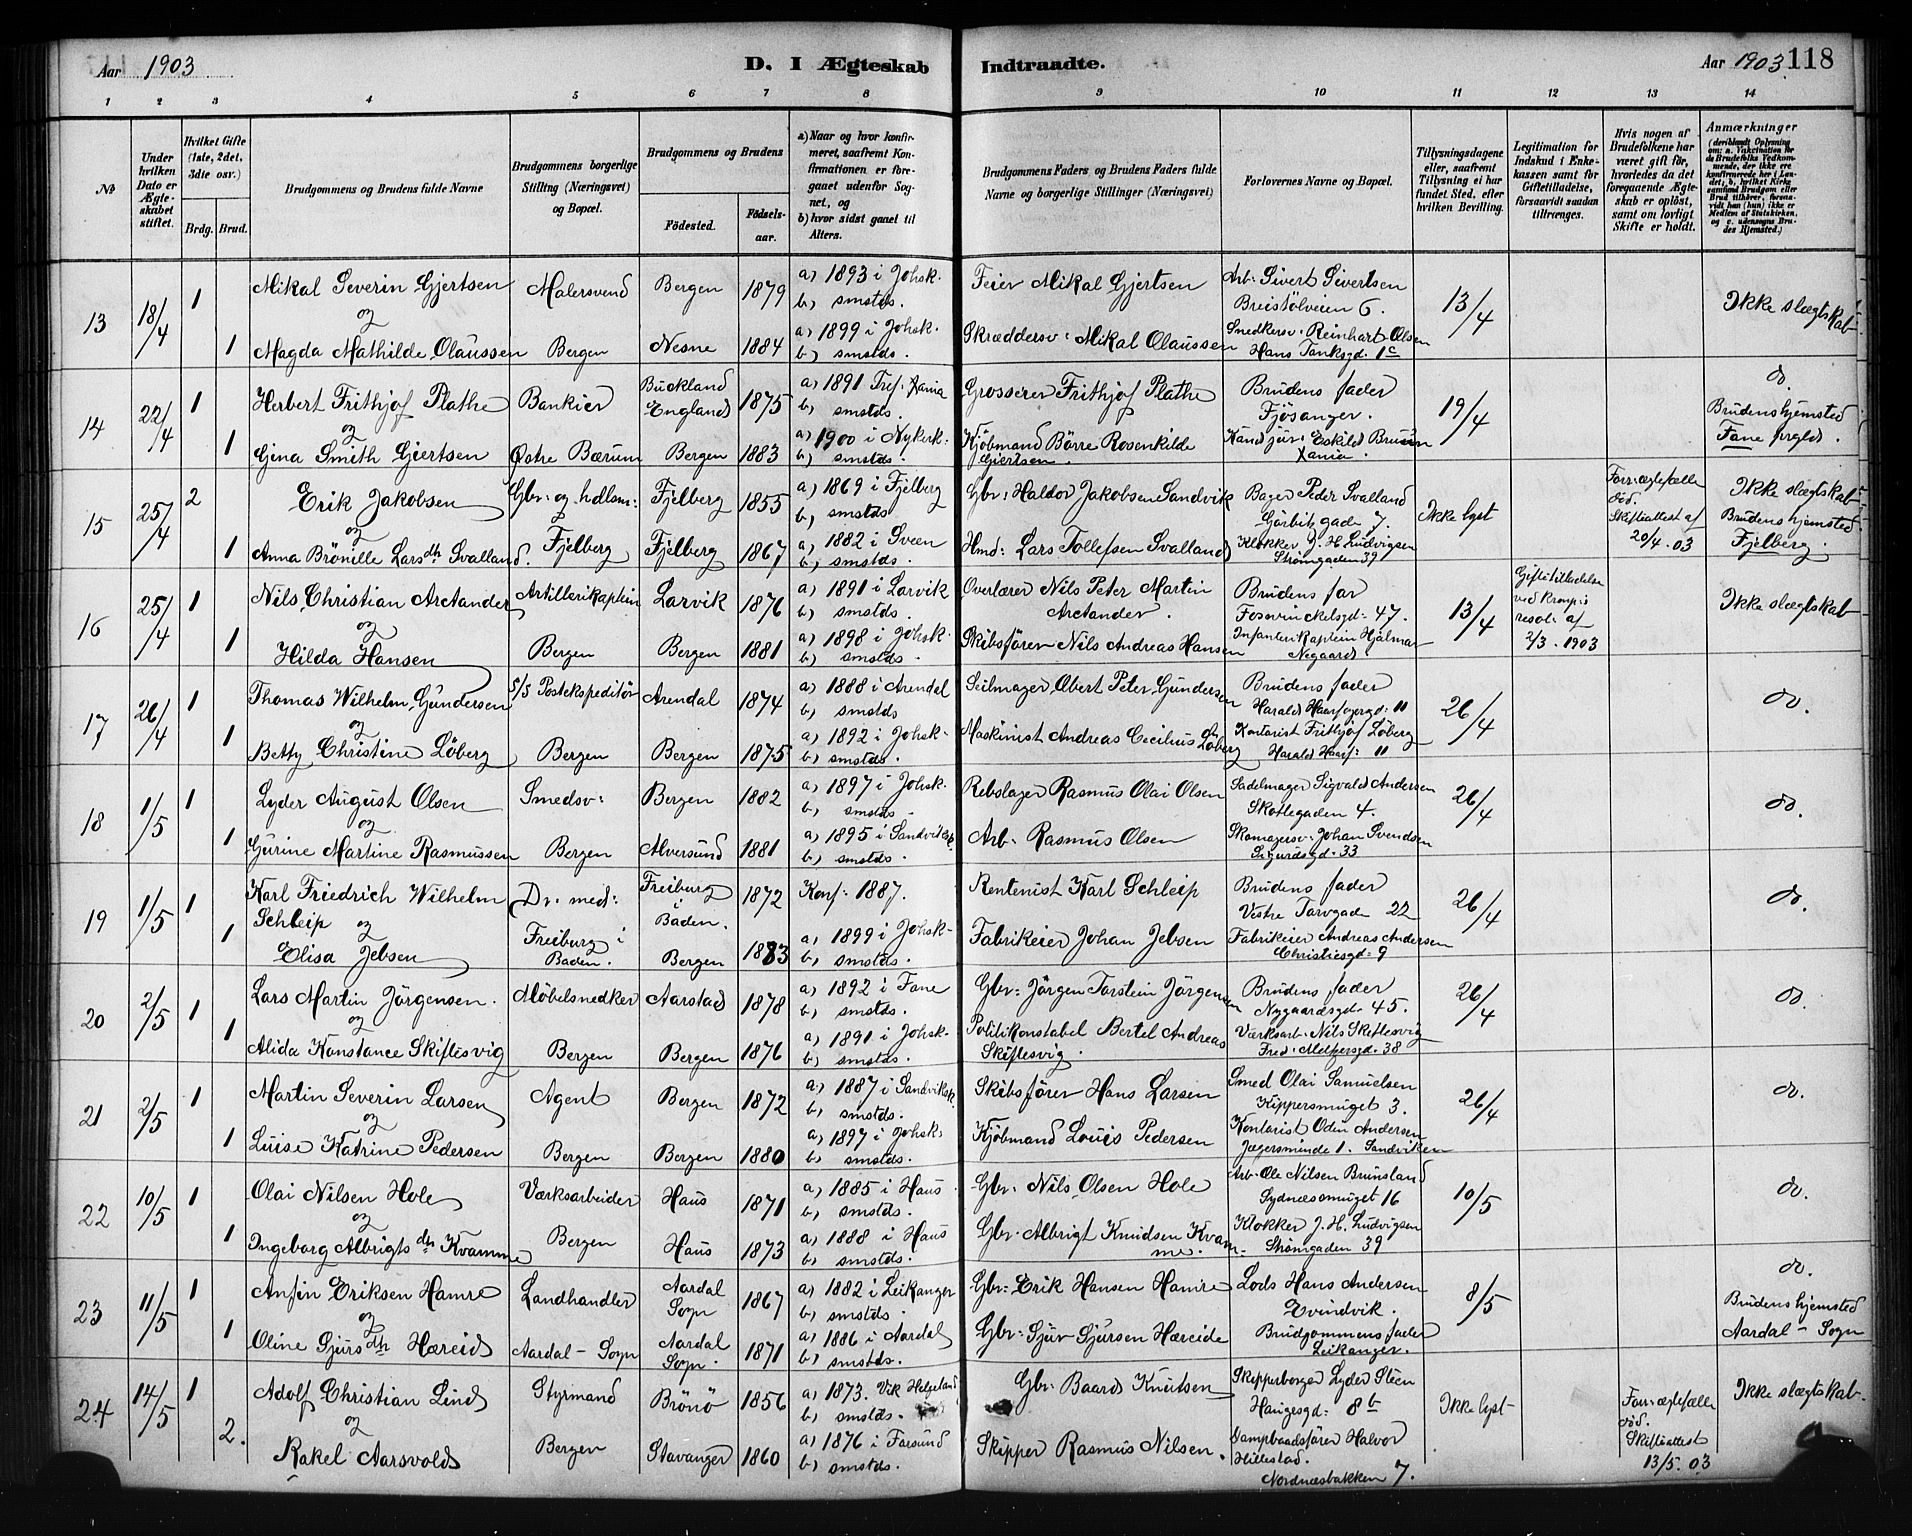 Aar 1903
D. I Ægteskab Indtraadte.
Aar 1903 118
1 2 3 4 5 6 7 8 9 10 11 12 13 14
No
Under hvilken Dato er Ægteskabet stiftet.
Hvilket Gifte (1ste, 2det, 3die osv.)
Brdg. Brud.
Brudgommens og Brudens fulde Navne
Brudgommens borgerlige Stilling (Næringsvei) og Bopæl.
Brudgommens og Brudens
Fødested.
Fødselsaar.
a) Naar og hvor konfirmeret, saafremt Konfirmationen er foregaaet udenfor Sognet, og
b) hvor sidst gaaet til Alters.
Brudgommens Faders og Brudens Faders fulde Navne og borgerlige Stillinger (Næringsvei)
Forlovernes Navne og Bopæl.
Tillysningsdagene eller, saafremt Tillysning ei har fundet Sted, efter hvilken Bevilling.
Legitimation for Indskud i Enkekassen samt for Giftetilladelse, forsaavidt saadan tiltrænges.
Hvis nogen af Brudefolkene har været gift før, hvorledes da det foregaaende Ægteskab er opløst, samt om lovligt Skifte er holdt.
Anmærkninger (deriblandt Oplysning om: a. Vakcination for de Brudefolks Vedkommende, der ikke ere konfirmerede her i Landet; b. hvilket Kirkesamfund Brudgom eller Brud tilhører, forsaavidt han (hun) ikke er Medlem af Statskirken, og c. udensogns Brudes Hjemsted.)
13 18/4 1 Mikal Severin Gjertsen Malersvend Bergen 1879 a) 1893 i Johsk. b) smstds. Feier Mikal Gjertsen Arb. Sivert Sivertsen Breistölveien 6. 13/4 Ikke slægtskab
og
1 Magda Mathilde Olaussen Bergen Nesne 1884 a) 1899 i Johsk. b) smstds. Skræddersv: Mikal Olaussen Smedkersv: Reinhart Olsen Hans Tanksgd. 1c
14 22/4 1 Herbert Frithjof Plathe Bankier Buckland England 1875 a) 1891 Tref. Xania b) smstds. Grosserer Frithjof Plathe Brudens fader Fjösanger. 19/4 do. Brudens hjemsted Fane prgld.
og
1 Gina Smith Gjertsen Østre Bærum Bergen 1883 a) 1900 i Nykerk: b) smstds. Kjöbmand Börre Rosenkilde Gjertsen Kand jur: Eskild Bruun Xania.
15 25/4 2 Erik Jakobsen Gbr: og hdlsm: Fjelberg 1855 a) 1869 i Fjelberg b) smstds Gbr: Haldor Jakobsen Sandvik Bager Peder Svalland Görbitzgade 7. Ikke lyst Forr: ægtefælle död. Skifteattest af 20/4. 03 Ikke slægtskab Brudens hjemsted Fjelberg.
og
1 Anna Brönille Larsdth Svalland. Fjelberg Fjelberg 1867 a) 1882 i Sveen b) smstds. Hmd: Lars Tollefsen Svalland Klokker J. H. Ludvigsen Strömgaden 39
16 25/4 1 Nils Christian Arctander Artillerikaptein Larvik 1876 a) 1891 i Larvik b) smstds. Overlærer Nils Peter Martin Arctander. Brudens far Fosswinckelsgd: 47. 13/4 Giftetilladelse ved kronpr:s resol: af 2/3. 1903 Ikke slægtskab
og
1 Hilda Hansen Bergen Bergen 1881 a) 1898 i Johsk. b) smstds. Skibsförer Nils Andreas Hansen Infanterikaptein Hjalmar Negaard.
17 26/4 1 Thomas Wilhelm Gundersen S/S Postekspeditör Arendal 1874 a) 1888 i Arendal b) smstds Seilmager Albert Peter Gundersen Brudens fader Harald Haarfagersgd: 11 26/4 do.
og
1 Betty Christine Löberg Bergen Bergen 1875 a) 1892 i Johsk. b) smstds. Maskinist Andreas Cecilius Löberg Kontorist Frithjof Löberg Harald Haarf: 11
18 1/5 1 Lyder August Olsen Smedsv: Bergen 1882 a) 1897 i Johsk. b) smstds. Rebslager Rasmus Olai Olsen Sadelmager Sigvald Andersen Skottegaden 4. 26/4 do.
og
1 Gurine Martine Rasmussen Bergen Alversund 1881 a) 1895 i Sandviksk. b) smstds. Arb. Rasmus Olsen Skomagersv: Johan Svendsen Sigurdsgd. 33
19 1/5 1 Karl Friedrich Wilhelm Schleip Dr. med: Freiburg i Baden. 1872 Konf: 1887. Rentenist Karl Schleip Brudens fader Vestre Torvgade 22 26/4 do.
og
1 Elisa Jebsen Freiburg i Baden. Bergen 1883 a) 1899 i Johsk. b) smstds. Fabrikeier Johan Jebsen Fabrikeier Andreas Andersen Christiesgd: 9
20 2/5 1 Lars Martin Jörgensen. Möbelsnedker Aarstad 1878 a) 1892 i Fane b) smstds. Gbr: Jörgen Torstein Jörgensen Brudens fader Nygaardsgd. 45. 26/4 do.
og
1 Alida Konstance Skiftesvig Bergen Bergen 1876 a) 1891 i Johsk. b) smstds. Politikonstabel Bertel Andreas Skiftesvig. Værksarb: Nils Skiftesvig Fred: Meltzersgd. 38
21 2/5 1 Martin Severin Larsen Agent Bergen 1872 a) 1887 i Sandviksk. b) smstds. Skibsförer Hans Larsen Smed Olai Samuelsen Kippersmuget 3. 26/4 do.
og
1 Luise Katrine Pedersen Bergen Bergen 1880 a) 1897 i Johsk. b) smstds. Kjöbmand Louis Pedersen Kontorist Odin Andersen Jægersminde 1. Sandviken
22 10/5 1 Olai Nilsen Hole Værksarbeider Haus 1871 a) 1885 i Haus b) smstds. Gbr: Nils Olsen Hole Arb. Ole Nilsen Brunsland Sydnæssmuget 16 10/5 do.
og
1 Ingeborg Albrigtsdtr Kvamme Bergen Haus 1873 a) 1888 i Haus b) smstds. Gbr. Albrigt Knudsen Kvamme. Klokker J. H. Ludvigsen Strömgaden 39
23 11/5 1 Anfin Eriksen Hamre Landhandler Aardal Sogn 1867 a) 1882 i Leikanger b) smstds. Gbr: Erik Hansen Hamre Lods Hans Andersen Evindvik. 8/5 do. Brudens hjemsted Aardal - Sogn
og
1 Oline Sjursdth Hæreid Aardal - Sogn Aardal Sogn. 1871 a) 1886 i Aardal b) smstds. Gbr: Sjur Sjursen Hæreide Brudgommens fader Leikanger.
24 14/5 1 Adolf Christian Lind Styrmand Brönö 1856 a) 1873. Vik Helgeland b) smstds. Gbr. Baard Knutsen Skipperborger Lyder Steen Haugesgd: 8b Ikke lyst Forr: ægtefælle död. Skifteattest 13/5. 03 Ikke slægtskab.
og
2. Rakel Aarsvold Bergen Stavanger 1860 a) 1876 i Farsund b) smstds. Skipper Rasmus Nilsen. Dampbaadsförer Halvor Hillestad. Nordnæsbakken 7.